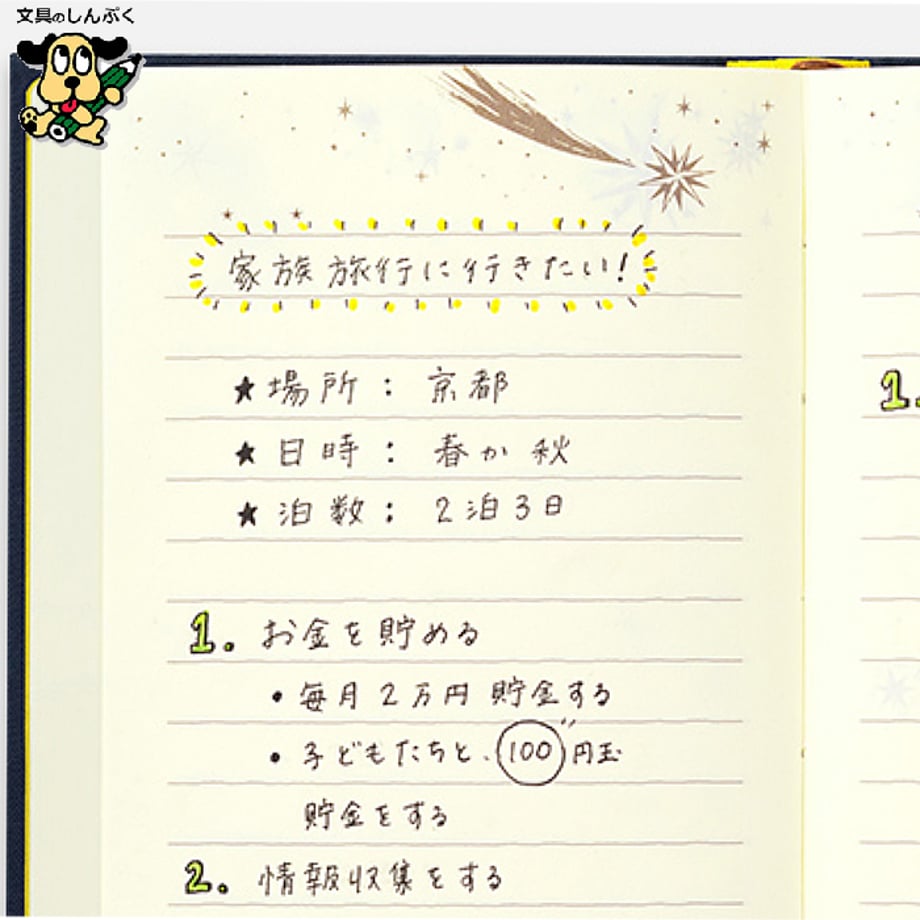 文具のしんぷく
家族旅行に行きたい!
★場所: 京都
★日時: 春か秋
★泊数: 2泊3日
1. お金を貯める
・毎月2万円貯金する
・子どもたちと、100円玉
貯金をする
2. 情報収集をする
1.